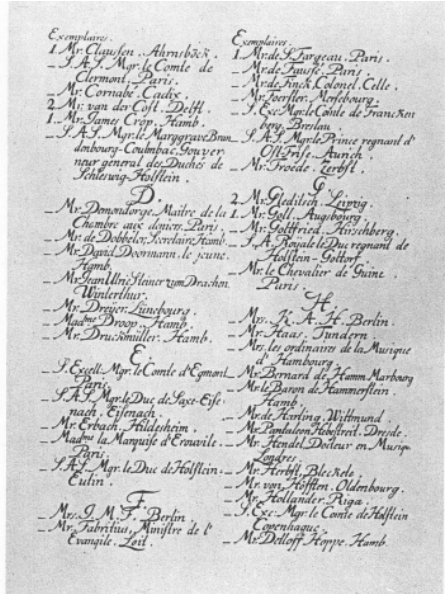 Exemplaires.
1. Mr. Claussen, Ahrnsböck.
_ S. A. S. Mgr. le Comte de
Clermont, Paris.
_ Mr. Cornabé, Cadix.
2. Mr. van der Cost, Delft.
1. Mr. James Crop, Hamb.
_ S. A. S. Mgr. le Marggrave Bran
denbourg-Coulmbac, Gouver
neur general des Duchés de
Schleswig-Holstein
D.
_ Mr. Demondorge, Maitre de la
Chambre aux deniers, Paris.
_ Mr. de Dobbeler, Secretaire, Hamb.
_ Mr. David Doormann, le jeune
Hamb.
_ Mr. Jean Ulric Steiner zum Drachen
Winterthur.
_ Mr. Dreyer, Lünebourg.
_ Madme Droop, Hamb.
_ Mr. Druckmüller, Hamb.
E.
_ S. Excell. Mgr. le Comte d'Egmont
Paris.
_ S. A. S. Mgr. le Duc de Saxe-Eise-
nach, Eisenach.
_ Mr. Erbach, Hildesheim.
_ Madme la Marquise d'Erouvile.
Paris.
_ S. A. S. Mgr. le Duc de Holstein-
Eutin.
F.
_ Mrs. J. M. F. Berlin.
_ Mr. Fabritius, Ministre de l'
Evangile, Loit.
Exemplaires.
1. Mr. de S. Fargeau, Paris.
_ Mr. de Faussé, Paris.
_ Mr. de Finck, Colonel, Celle.
_ Mr. Foerster, Mersebourg.
_ S. Exc. Mgr. le Comte de Francken
berg, Breslau.
_ S. A. S. Mgr. le Prince regnant d'
Ost-Frise, Aurich.
_ Mr. Froede, Zerbst.
G
2. Mr. Gleditsch, Leipzig.
1. Mr. Goll, Augsbourg.
_ Mr. Gottfried, Hirschberg.
_ S. A. Royale le Duc regnant de
Holstein-Gottorf.
_ Mr. le Chevalier de Guine
Paris.
H.
_ Mrs. K. A. H. Berlin.
_ Mr. Haas, Tundern.
_ Mrs. les ordinaires de la Musique
d'Hambourg.
_ Mr. Bernard de Hamm, Marbourg
_ Mr. le Baron de Hammerstein
Hamb.
_ Mr. de Harling, Wittmund.
_ Mr. Pantaleon Hebestreit, Dresde.
_ Mr. Hendel, Docteur en Musique
Londres.
_ Mr. Herbst, Bleckele.
_ Mr. von Höfften, Oldenbourg.
_ Mr. Hollander, Riga.
_ S. Exc. Mgr. le Comte de Holstein
Copenhague.
_ Mr. Detloff Hoppe, Hamb.